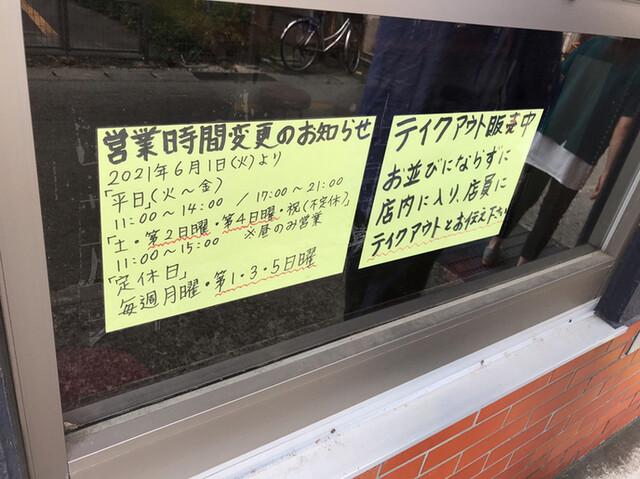 営業時間変更のお知らせ
2021年6月1日(火)より
「平日」(火〜金)
11:00〜14:00 / 17:00〜21:00
「土・第2日曜・第4日曜・祝(不定休)」
11:00〜15:00 ※昼のみ営業
「定休日」
毎週月曜・第1・3・5日曜
テイクアウト販売中
お並びにならずに
店内に入り、店員に
テイクアウトとお伝え下さい